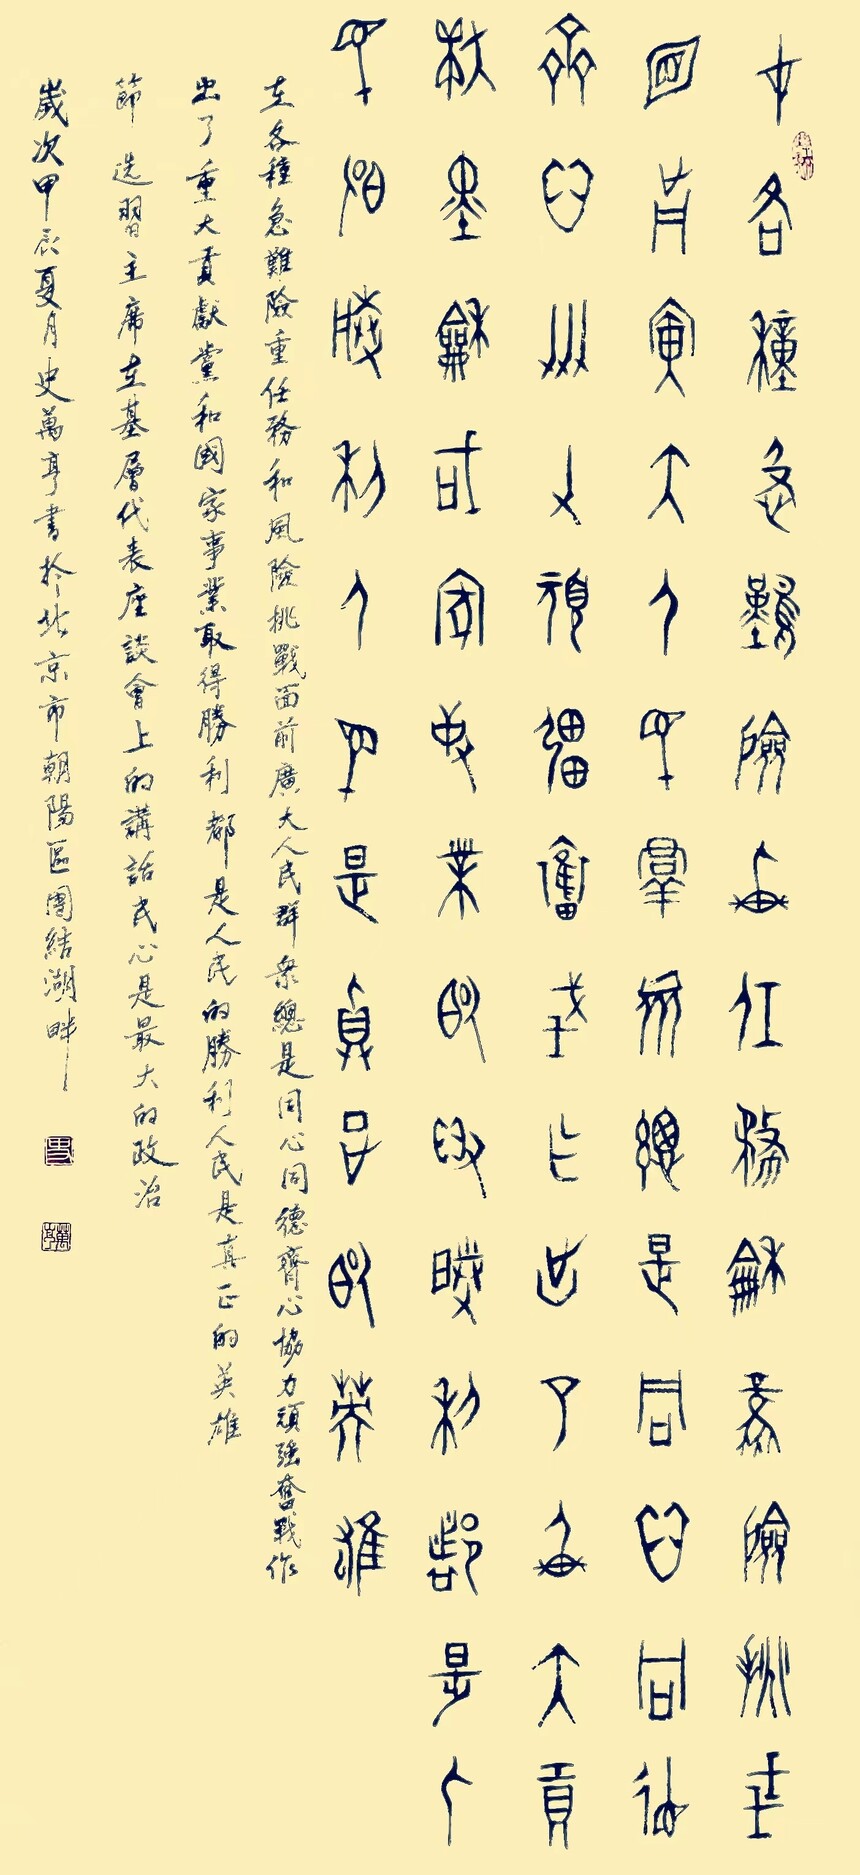 在各種急難險重任務和風險挑戰
面前廣大人民群衆總是同心同德
齊心協力頑強奮戰作出了重大貢
獻黨和國家事業取得勝利都是人
民的勝利人民是真正的英雄
在各種急難險重任務和風險挑戰面前廣大人民群衆總是同心同德齊心協力頑強奮戰作
出了重大貢獻黨和國家事業取得勝利都是人民的勝利人民是真正的英雄
節選習主席在基層代表座談會上的講話民心是最大的政治
歲次甲辰夏月史萬亨書於北京市朝陽區團結湖畔